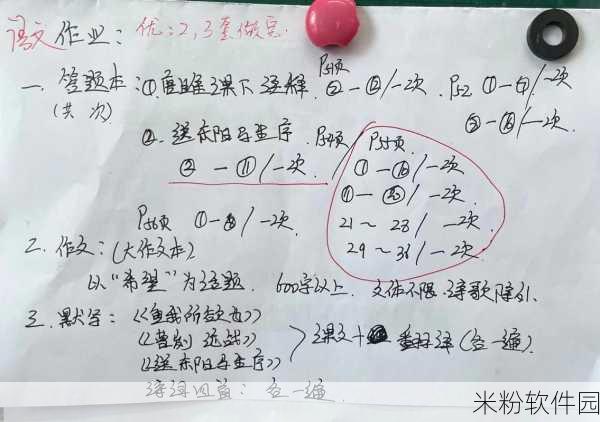 语文作业：优：2，3套做完.
一、答题本：①唐雎课下选择. P51页 ②－⑫/一次. P52 ①－④/一次
(共 次) ⑤－⑬/一次.
②. 送东阳马生序 P54页 P55页
②－⑪/一次 ①－⑩/一次
⑪－⑳/一次.
P56页 ①－⑧/一次 21～28/一次.
29～36/一次.
二. 作文：(大作文本)
以“希望”为话题. 600字以上. 文体不限. 诗歌除外.
三. 默写：《鱼我所欲也》
《曹刿论战》 〉课文＋翻译(各一遍).
《送东阳马生序》
诗词四首：各一遍.
米粉软件园